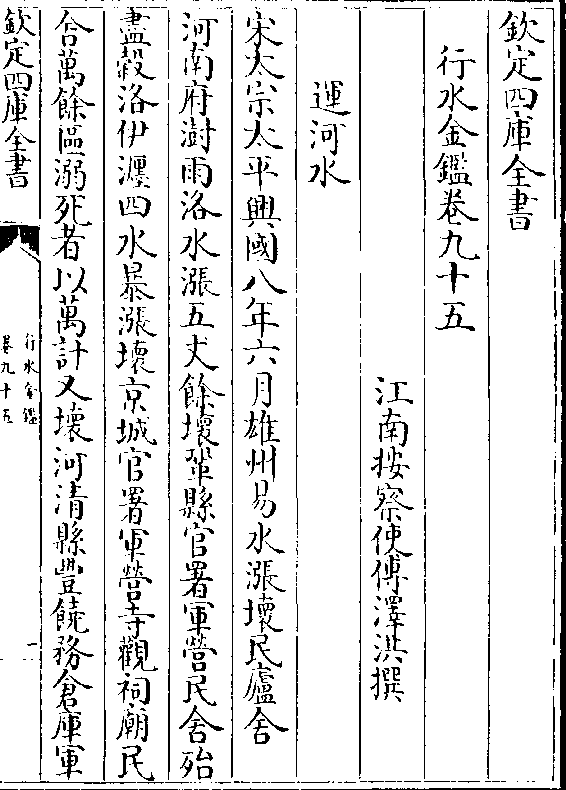 欽定四庫全書
行水金鑑卷九十五
江南按察使傅澤洪撰
運河水
宋太宗太平興國八年六月雄州易水漲壞民廬舍
河南府澍雨洛水漲五丈餘壞鞏縣官署軍營民舍殆
盡穀洛伊瀍四水暴漲壞京城官署軍營寺觀祠廟民
舍萬餘區溺死者以萬計又壞河清縣豐饒務倉庫軍
欽定四庫全書
行水金鑑
卷九十五
一